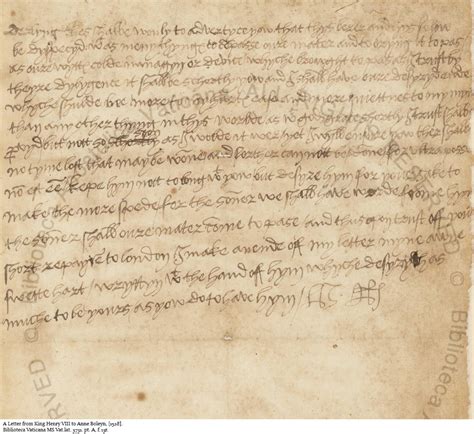 derlyng thes shall be wonly to advertyse yow that thys berer and hys felow
be dyspecyd w as meny thyngs to compase oure mater and to bryng it to pas
as oure wytts colde immagyn or devyse whyche brought to pas as I trust by
theyre dylygence it shall be shortly yow and I shall have oure desyryd ende
whyche shulde be more to my harts ease and more quietnes to my mynd
than any other thyng in thys worlde as w gods grace shortly I trust shall be
provyd but not so sson as I wolde it wer yet I wyll ensure yow ther shall be
no tyme lost that may be wone and forther can not be done for ultra posse
non est esse kepe hym not to long w yow but desyre hym for your sake to
make the more spede for the soner we shall have worde frome hym
the soner shall oure mater come to pase and thus upon trust off your
short repayre to london I make an ende off my letter myne awne
swete hart wryttyn w the hand off hym whyche desyryth as
muche to be yours as yow do to have hym H R
A Letter from King Henry VIII to Anne Boleyn, [1528].
Biblioteca Vaticana MS Vat.lat. 3731. pt. A, f.13r